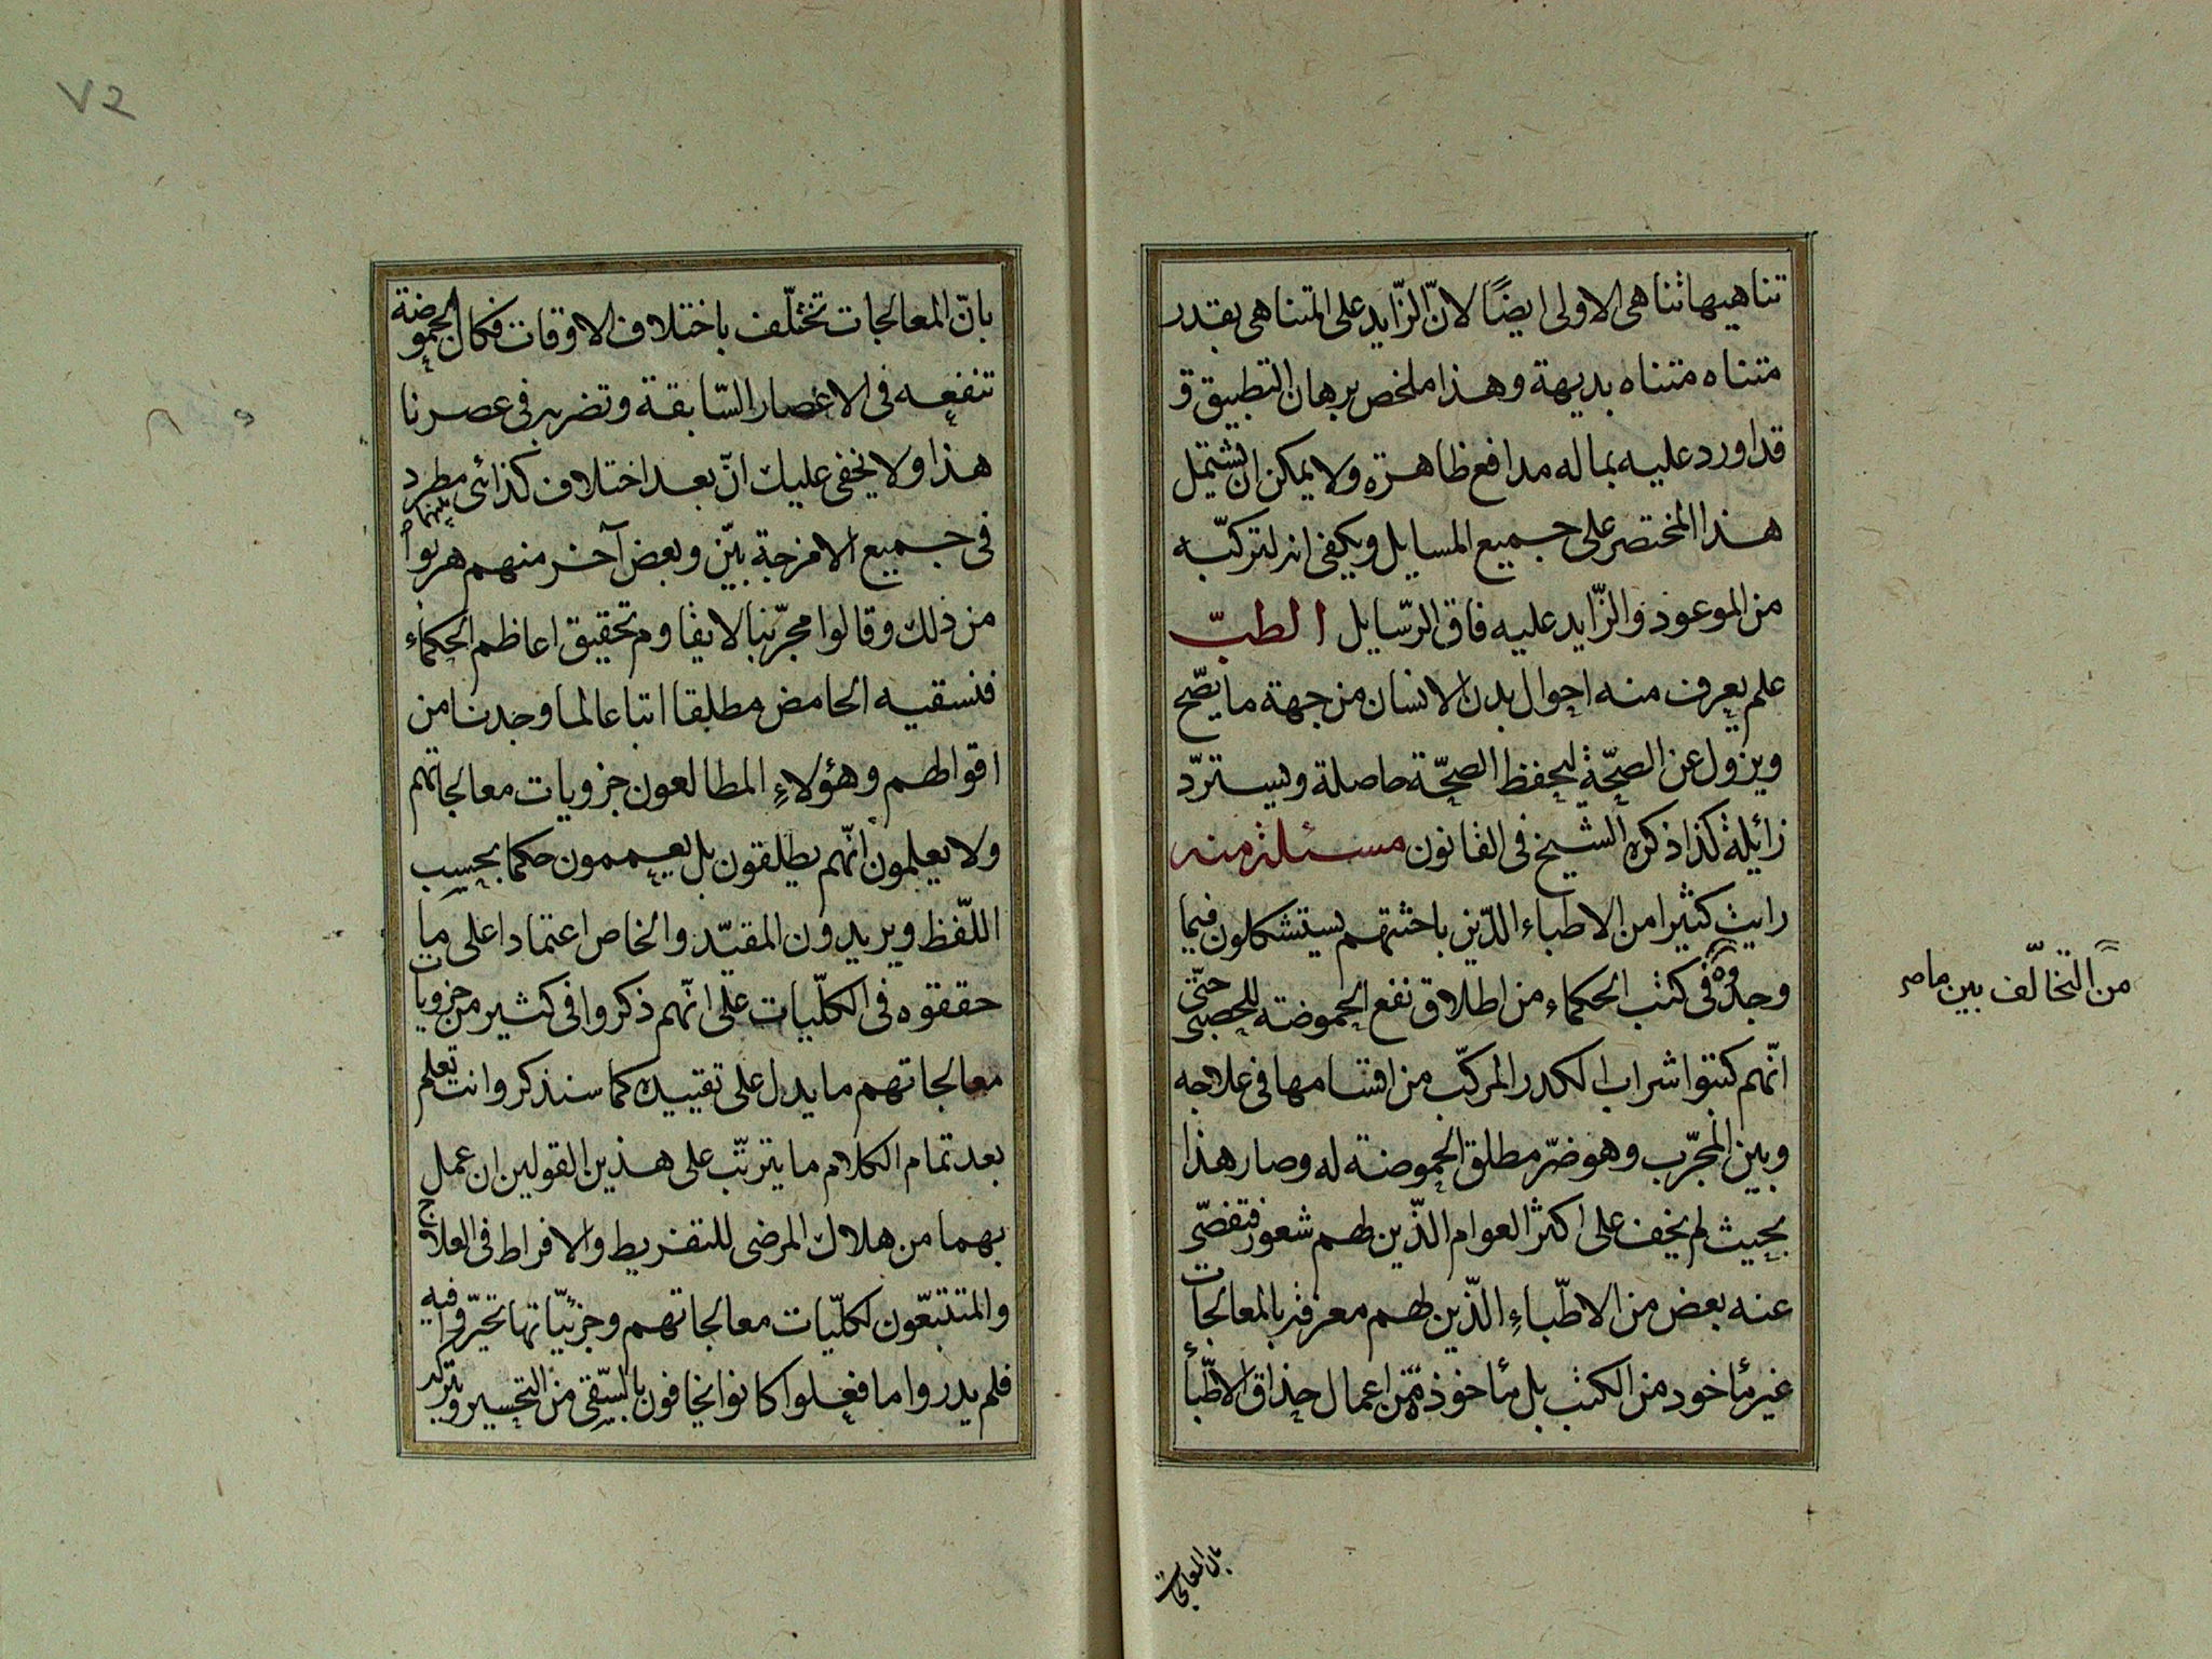 تناهيها تناهى الاولى ايضًا لانّ الزّايد على المتناهى بقدر
متناه متناه بديهة وهذا ملخص برهان التطبيق و
قد اورد عليه بماله مدافع ظاهرة ولا يمكن ان يشتمل
هذا المختصر على جميع المسايل ويكفى انه لتركبه
من الموعود والزّايد عليه فاق الرّسايل الطبّ
علم يعرف منه احوال بدن الانسان من جهة ما يصّح
ويزول عن الصحّة ليحفظ الصحّة حاصلة ويسترّد
زائلة كذا ذكره الشيخ فى القانون مسئلة منه
رايت كثيرا من الاطباء الذّين باحثتهم يستشكلون فيما
وجدوه فى كتب الحكماء من اطلاق نفع الحموضة للحصبى حتّى
انّهم كتبوا شراب الكدر المركّب من اقسامها فى علاجه
وبين المجرّب وهو ضرّ مطلق الحموضة له وصار هذا
بحيث لم يخف على اكثر العوام الذّين لهم شعور فتفصّى
عنه بعض من الاطّباءِ الذّين لهم معرفة بالمعالجات
غير مأخود من الكتب بل مأخوذة من اعمال حذاق الاطّبأ
من التخالّف بين ما صر
بان المعالجات
٧٢
بانّ المعالجات تختلّف باختلاف الاوقات فكان الحموضة
تنفعه فى الاعصار السّابقة وتضربه فى عصرنا
هذا ولا يخفى عليك انّ بعد اختلاف كذائى مطرد
فى جميع الامزجة بيّن وبعض آخر منهم هربوا
من ذلك وقالوا مجرّبنا لا يقاوم تحقيق اعاظم الحكماء
فنسقيه الحامض مطلقا اتباعا لما وجدنا من
اقوالهم وهؤلاءِ المطالعون جزويات معالجاتهم
ولا يعلمون انّهم يطلقون بل يعممون حكما بحسب
اللّفظ ويريدون المقيّد والخاص اعتمادا على ما
حققوه فى الكلّيات على انّهم ذكروا فى كثير من جزويات
معالجاتهم ما يدل على تقييده كما سنذكر وانت تعلم
بعد تمام الكلام ما يترتّب على هذين القولين ان عمل
بهما من هلاك المرضى للتفريط والافراط فى العلاج
والمتتبعّون لكلّيات معالجاتهم وجزئيّاتها تحيّروا فيه
فلم يدروا ما فعلوا كانوا يخافون بالسّقى من التخسير وبتركه